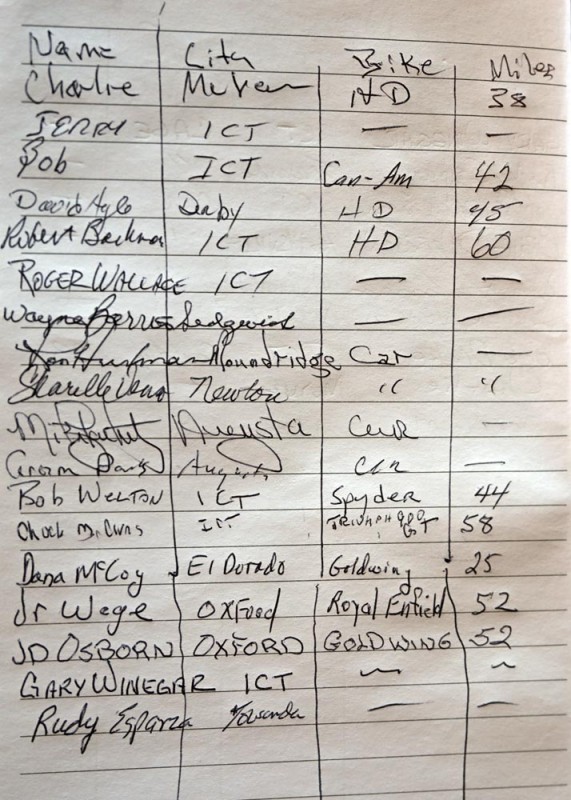 Name City Bike Miles
Charlie Mulvane HD 38
JERRY ICT — —
Bob ICT Can-Am 42
David Ayle Derby HD 45
Robert ICT HD 60
ROGER WALLACE ICT — —
Wayne Sedgwick — —
Moundridge Car —
Newton " "
Augusta Car —
Augusta Car —
BOB WELTON ICT Spyder 44
Chuck ICT TRIUMPH GT 58
Dana McCoy El Dorado Goldwing 25
Jr Wege OXFord Royal Enfield 52
JD OSBORN OXFORD GOLDWING 52
GARY WINEGAR ICT ~ ~
Rudy Esparza Towanda — —